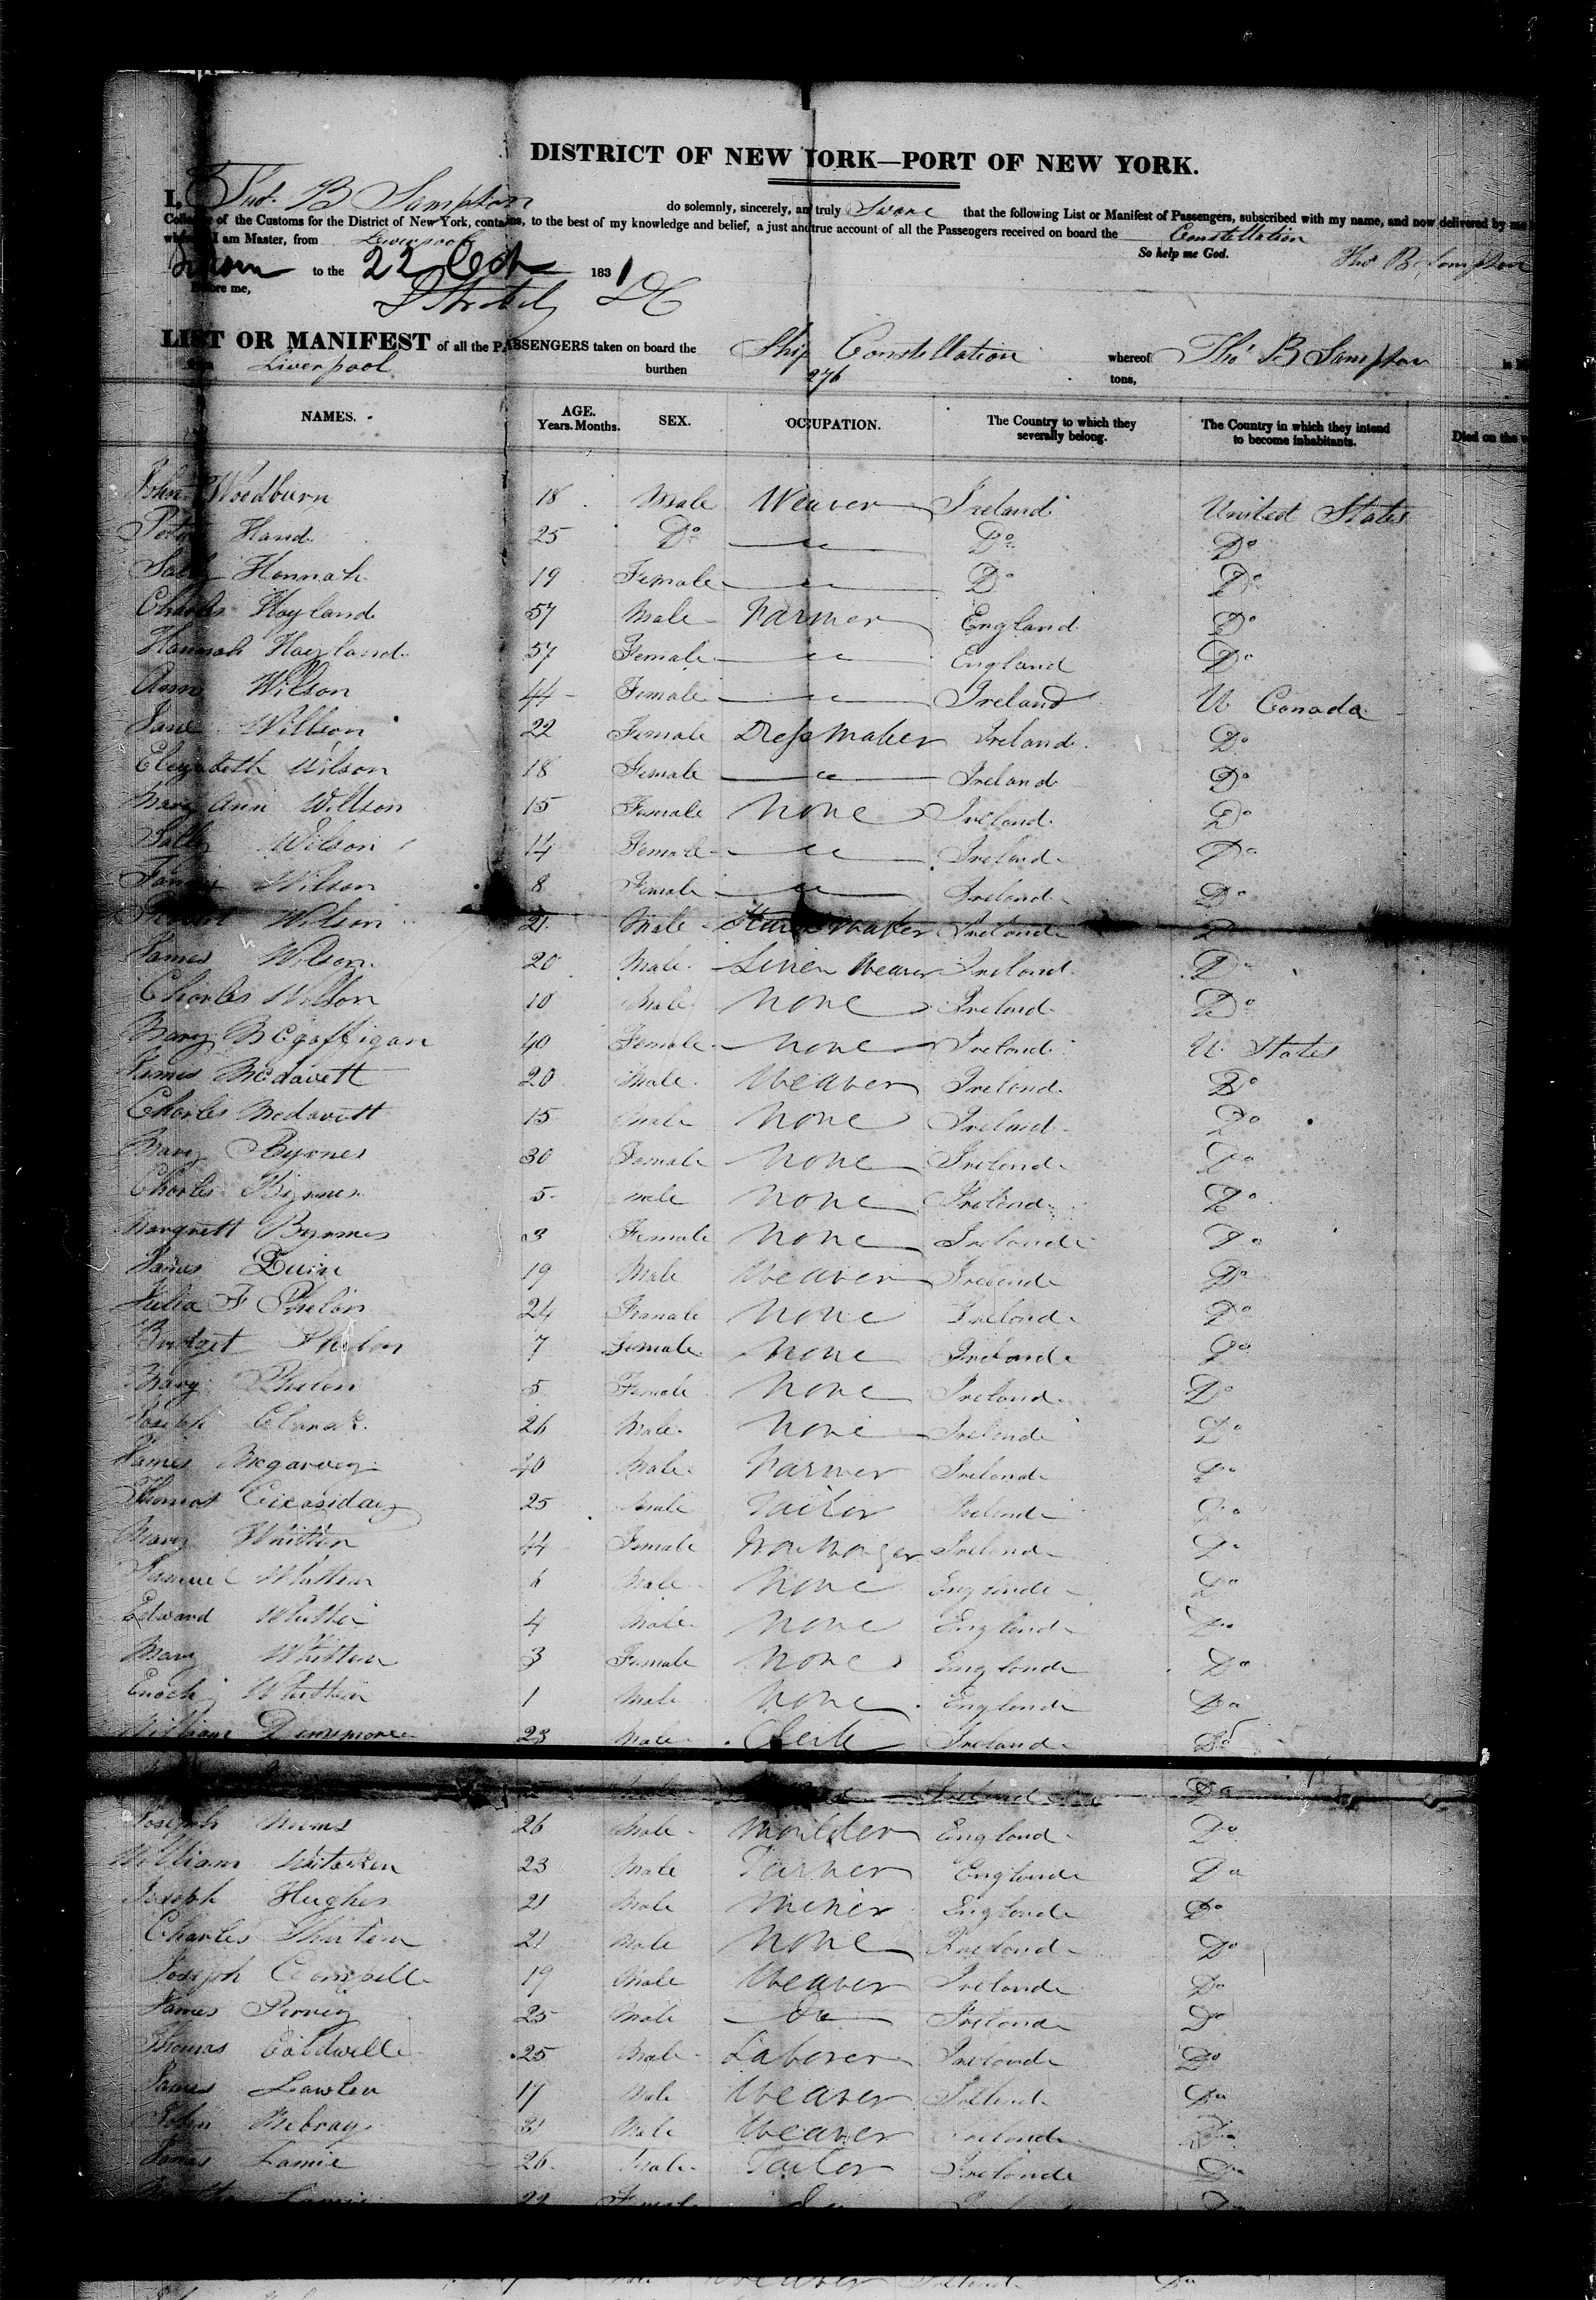 DISTRICT OF NEW YORK—PORT OF NEW YORK.
I, Thos. B Sampson do solemnly, sincerely, and truly Swore that the following List or Manifest of Passengers, subscribed with my name, and now delivered by me
of the Customs for the District of New York, contains, to the best of my knowledge and belief, a just and true account of all the Passengers received on board the Constellation
I am Master, from Liverpool So help me God. Thos B Sampson
Sworn to the 22 Oct 1831
Before me,
LIST OR MANIFEST of all the PASSENGERS taken on board the Ship Constellation whereof Thos B Sampson
Liverpool burthen 276 tons,
NAMES. AGE. Years. Months. SEX. OCCUPATION. The Country to which they severally belong. The Country in which they intend to become inhabitants. Died on the
John Woodburn 18 Male Weaver Ireland United States
Peter Hand 25 Do " Do Do
Sally Hannah 19 Female " Do Do
Charles Hayland 57 Male Farmer England Do
Hannah Hayland 57 Female " England Do
Ann Wilson 44 Female " Ireland U Canada
Jane Willson 22 Female Dress Maker Ireland Do
Elizabeth Wilson 18 Female " Ireland Do
Mary Ann Willson 15 Female None Ireland Do
Sally Wilson 14 Female " Ireland Do
Fanny Wilson 8 Female " Ireland Do
Wilson 21 Male Maker Ireland Do
James Wilson 20 Male Linen Weaver Ireland Do
Charles Wilson 10 Male None Ireland Do
Mary McGaffigan 40 Female None Ireland U States
James McDavett 20 Male Weaver Ireland Do
Charles McDavett 15 Male None Ireland Do
Mary Byrnes 30 Female None Ireland Do
Charles Byrnes 5 Male None Ireland Do
Margrett Byrnes 3 Female None Ireland Do
James Quin 19 Male Weaver Ireland Do
Julia F Phelon 24 Female None Ireland Do
Bridget Phelon 7 Female None Ireland Do
Mary Phelon 5 Female None Ireland Do
Joseph Clark 26 Male None Ireland Do
James McGarvey 40 Male Farmer Ireland Do
Thomas 25 Male Tailor Ireland Do
Mary Whitten 44 Female Ireland Do
Samuel Whitten 6 Male None England Do
Edward Whitten 4 Male None England Do
Mary Whitten 3 Female None England Do
Enoch Whitten 1 Male None England Do
William Dinsmore 23 Male Clerk Ireland Do
Ireland Do
Joseph 26 Male Moulder England Do
William 23 Male England Do
Joseph Hughes 21 Male Miner England Do
Charles 21 Male None Ireland Do
Joseph Campell 19 Male Weaver Ireland Do
James 25 Male Do Ireland Do
Thomas Caldwell 25 Male Laborer Ireland Do
James Lawler 17 Male Weaver Ireland Do
John 31 Male Weaver Ireland Do
James Lamie 26 Male Tailor Ireland Do
22 Female
Weaver